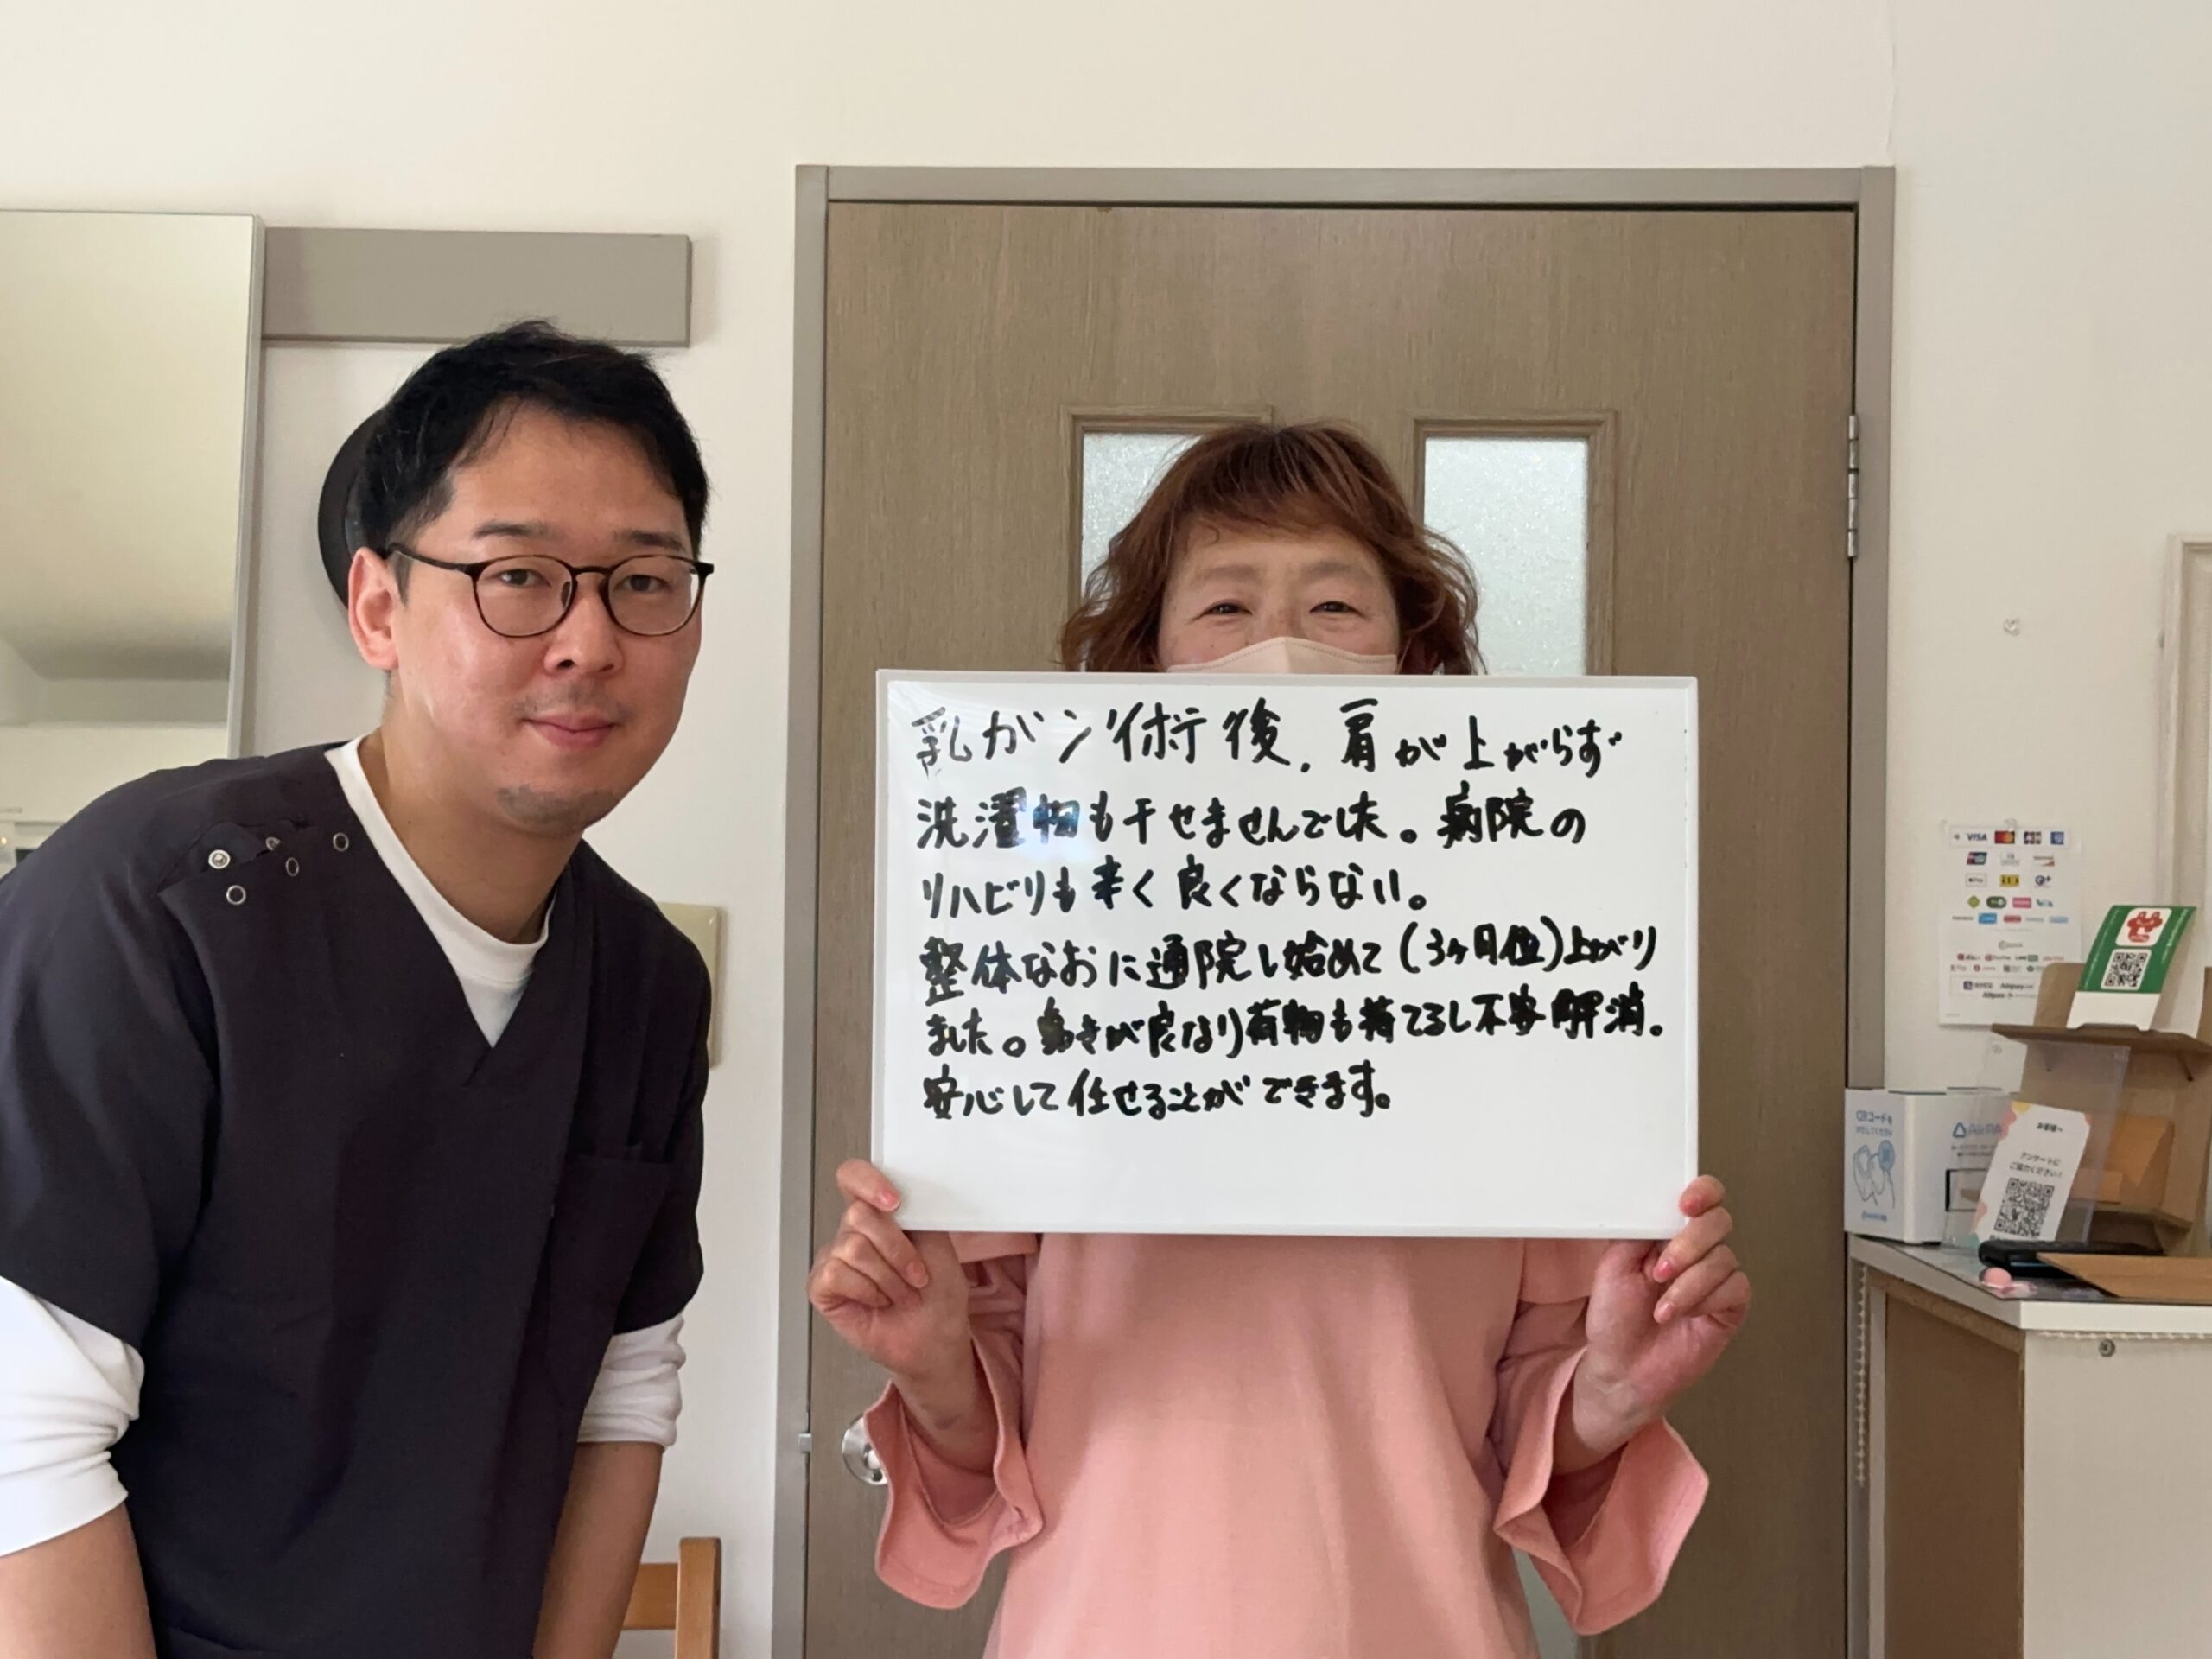 乳がン術後、肩が上がらず
洗濯物も干せませんでした。病院の
リハビリも辛く良くならない。
整体なおに通院し始めて(3ヶ月位)上がり
ました。動きが良なり荷物も持てるし不安解消。
安心して任せることができます。
VISA
QRコードを
お客様へ
アンケートに
ご協力ください!